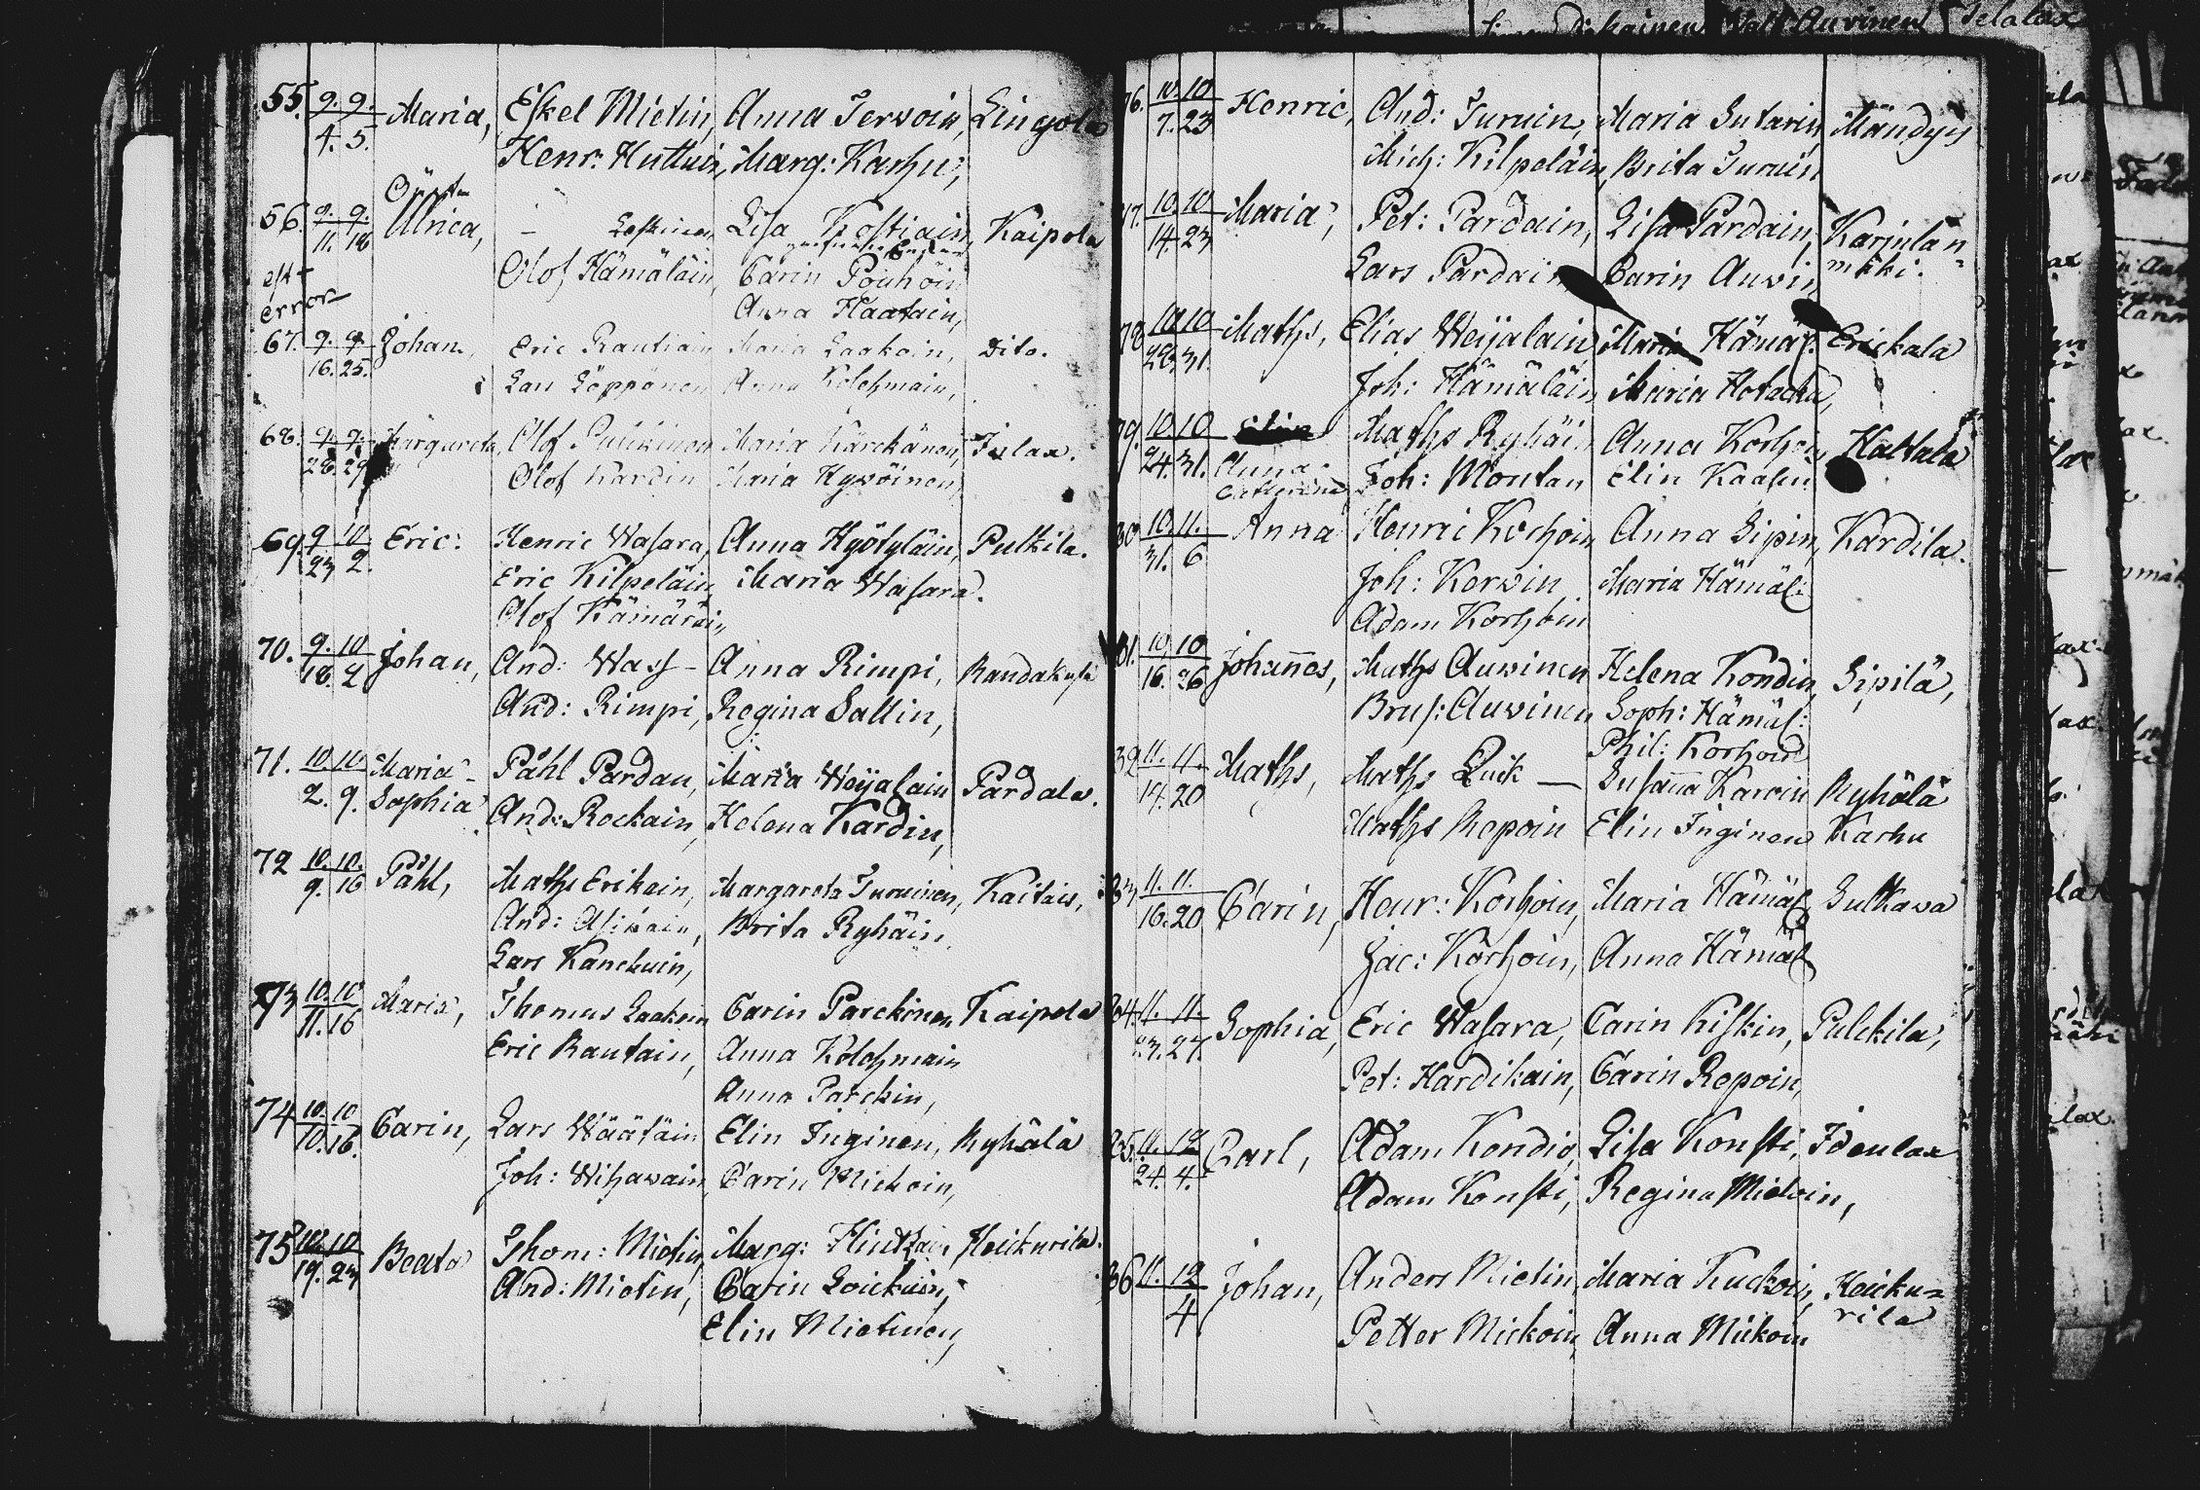 55. 9. 9. Maria, Eskel Mietin, Anna Terwoin, Lingola
4. 5. Henr: Huttuin, Marg: Karhu,
56. 9. 9. Ulrica, Leskinen Lisa Kostiain, Kaipola
11. 18
est Olof Hämäläin, Carin Pouhoin
error Anna Haatain,
67. 9. 9. Johan, Eric Rautiain Maria Laakoin, Dito.
16. 25. Lars Löppönen Anna Kolehmain,
68. 9. 9. Margareta, Olof Pulkinen Maria Karckänen, Julax.
28. 29 Olof Kardin Maria Hyvöinen,
69. 9 10. Eric: Henric Wasara, Anna Hyötyläin, Pulkila.
23 2. Eric Kilpeläin Maria Wasara.
Olof Kämäräi,
70. 9. 10 Johan, And: Wass- Anna Rimpi, Randakylä
18. 2 And: Rimpi, Regina Sallin,
71. 10. 10. Maria- Påhl Pardan, Maria Weijalain Pardala.
2. 9. Sophia And: Rockain, Helena Kardin,
72 10. 10. Påhl, Maths Erikain, Margareta Turuinen, Kaitais,
9. 16 And: Asikain, Brita Ryhäin,
Lars Kanckuin,
73 10. 10 Maria, Thomas Laakoin Carin Parckinen Kaipola
11. 16 Eric Rautain, Anna Kolehmain
Anna Parckin,
74 10. 10 Carin, Lars Wäätäin Elin Inginen, Ryhälä
10. 16. Joh: Wihawain, Carin Mickoin,
75 10. 10 Beata Thom: Mietin, Marg: Heickurila.
19. 23 And: Mietin, Carin Loickuin,
Elin Mietinen,
76. 10. 10 Henric, And: Turuin, Maria Sutarin, Mändyis
7. 23 Mich: Kilpeläin, Brita Turuin
77. 10. 10 Maria, Pet: Pardain, Lisa Pardain, Karjulan=
14. 23 Lars Pardain Carin Auvin, mäki.
78 10. 10 Maths, Elias Weijalain Maria Hämäl: Erickala
23. 31. Joh: Hämäläin Maria Hotacka,
79. 10. 10 Elin Maths Ryhäin Anna Korhoin, Hattala
24. 31. Anna Catharina Joh: Montan Elin Kaasu
80 10. 11. Anna Henric Korhoin Anna Sipin, Kardila.
31. 6 Joh: Kerwin Maria Hämäl:
Adam Korhoin
81. 10. 10 Johannes, Maths Auwinen Helena Kondin, Sipilä,
16. 26 Brus: Auwinen Soph: Hämäl:
Phil: Korhoin
82 11. 11. Maths, Maths Quik — Susanna Karvin Ryhälä
14. 20 Maths Repoin Elin Inginen Karhu
83 11. 11. Carin, Henr: Korhoin, Maria Hämäl Sulkawa
16. 20 Jac: Korhoin, Anna Hämäl
84. 11. 11. Sophia, Eric Wasara, Carin Kiskin, Pulckila,
23. 27. Pet: Hardikain, Carin Repoin,
85. 11. 12 Carl, Adam Kondio, Lisa Konsti, Idenlax
24. 4. Adam Konsti, Regina Mietoin,
86 11. 12 Johan, Anders Mietin, Maria Kuckoi, Heicku=
4 Petter Mickoin, Anna Mickoin rila